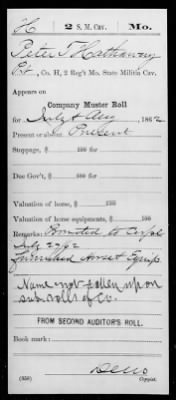 H 2 S. M. Cav. Mo.
Peter T Hathaway
Pt, Co. H, 2 Reg't Mo. State Militia Cav.
Appears on
Company Muster Roll
for July & Aug, 1862
Present or absent Present
Stoppage, $ 100 for
Due Gov't, $ 100 for
Valuation of horse, $ 100
Valuation of horse equipments, $ 100
Remarks: Promoted to Corpl
July 22/62
furnished horse & Equip
Name not fallen upon
sub. rolls of Co.
FROM SECOND AUDITOR'S ROLL.
Book mark:
(358) Copyist.